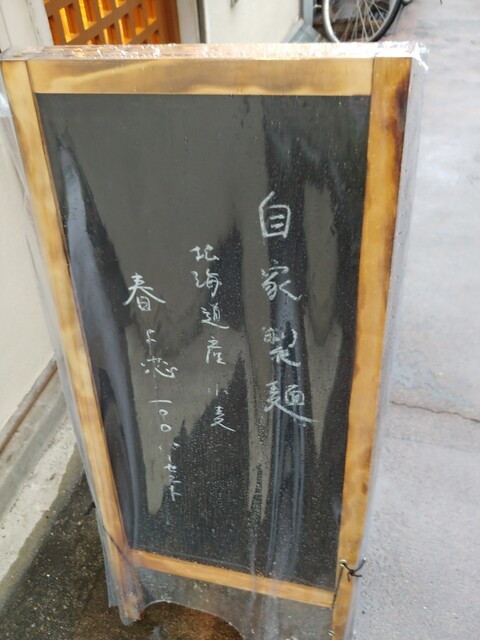 自家製麺
北海道産小麦
春よ恋一〇〇パーセント